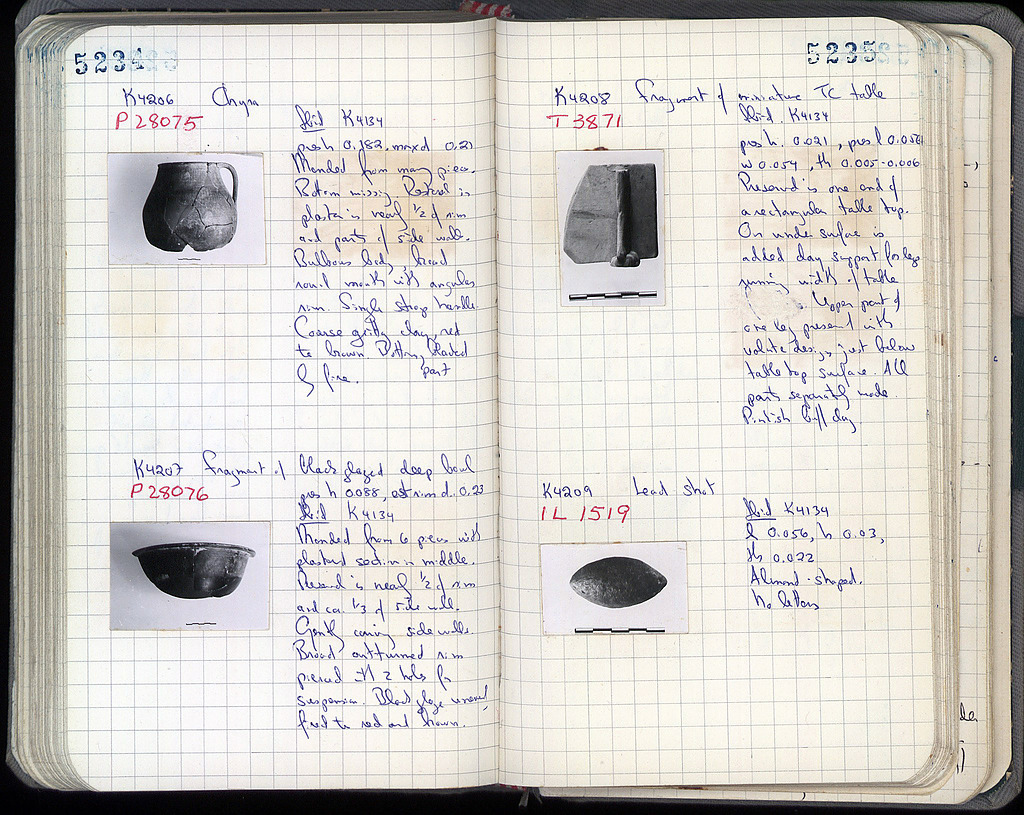 5234
K4206 Chytra
P 28075
Ibid K4134
pres h 0.182, max d 0.21
Mended from many pieces.
Bottom missing. Restored in
plaster is nearly 1/2 of rim
and parts of side wall.
Bulbous body, broad
round mouth with angular
rim. Single strap handle.
Coarse gritty clay, red
to brown. Bottom blacked
part
by fire.
K4207 Fragment of black glazed deep bowl
P 28076
pres h 0.088, est rim d. 0.23
Ibid K4134
Mended from 6 pieces with
plastered section in middle.
Preserved is nearly 1/2 of rim
and ca. 1/3 of side wall.
Gently curving side walls.
Broad outturned rim
pierced with 2 holes for
suspension. Black glaze unevenly
fired to red and brown.
5235
K4208 Fragment of miniature TC table
T 3871
Ibid. K4134
pres h. 0.021, pres l 0.056
w 0.054, th 0.005-0.006
Preserved is one end of
a rectangular table top.
On under surface is
added clay support for legs
running width of table
Upper part of
one leg present with
volute design just below
table top surface. All
parts separately made.
Pinkish buff clay
K4209 Lead shot
IL 1519
Ibid K4134
l 0.056, h 0.03,
th 0.022
Almond-shaped.
No letters